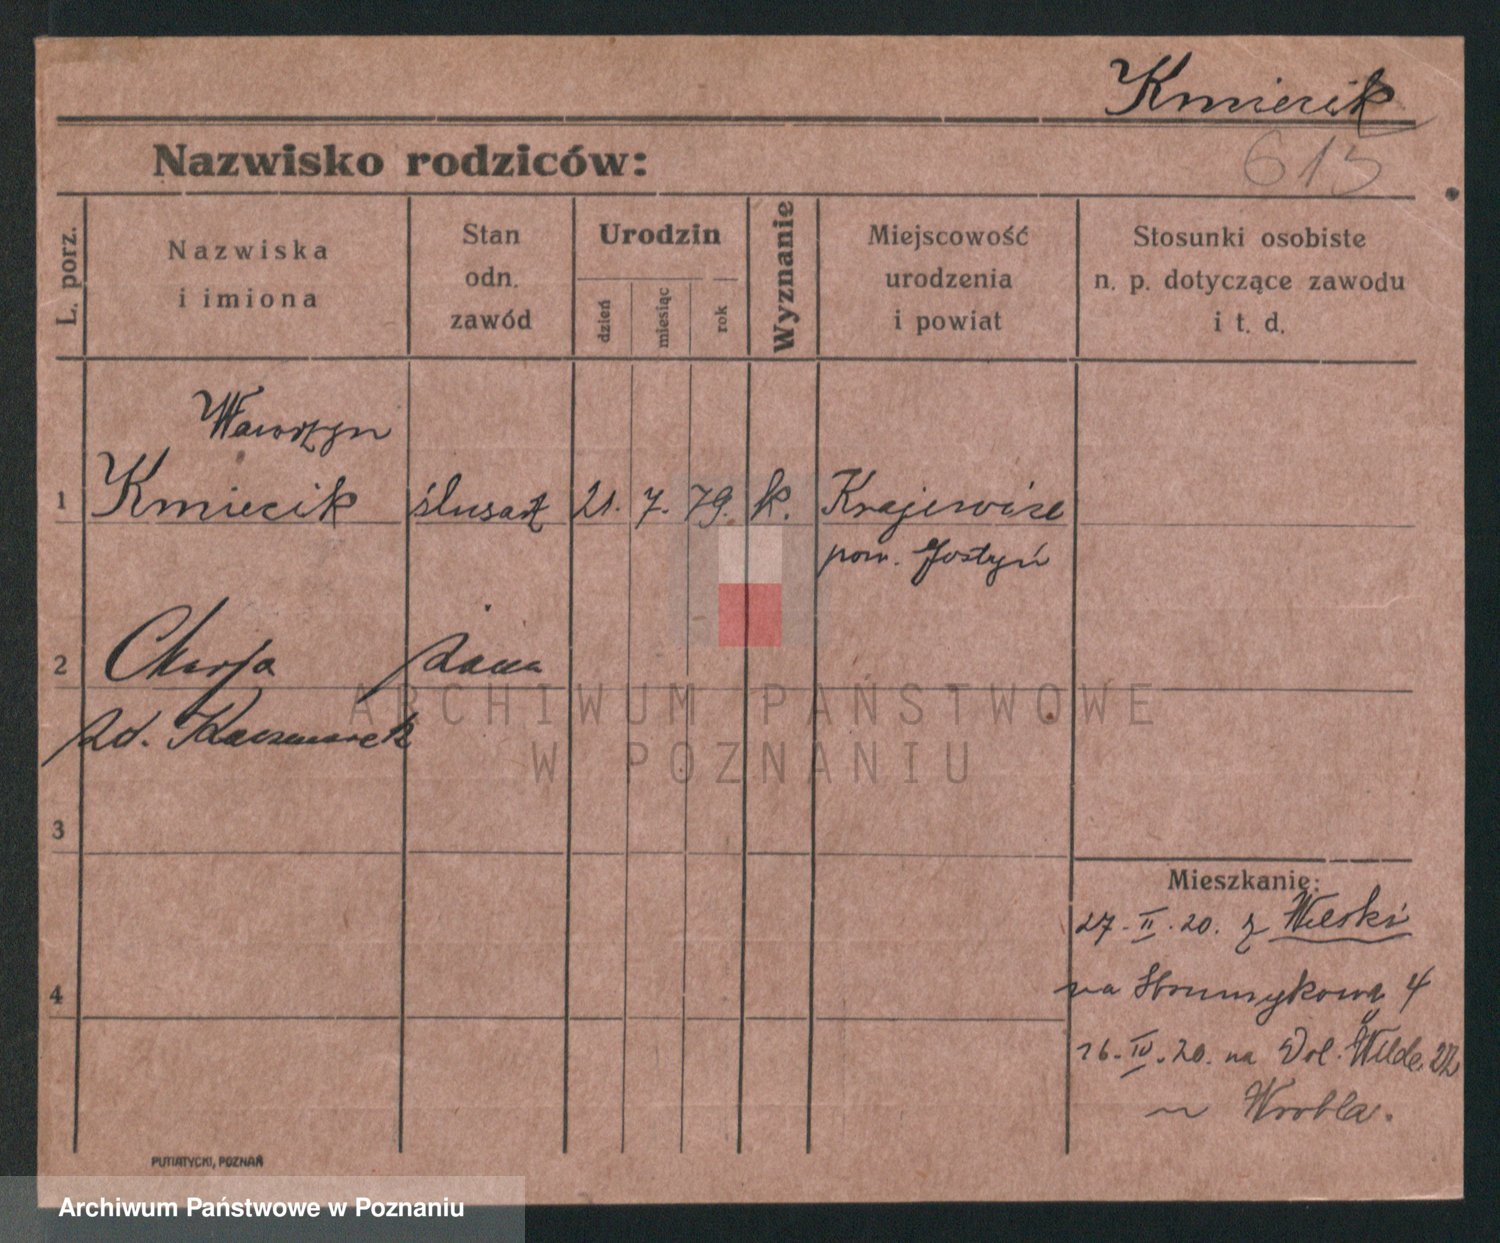 Kmiecik
613
Nazwisko rodziców:
L. porz.
Nazwiska
i imiona
Stan
odn.
zawód
Urodzin
dzień
miesiąc
rok
Wyznanie
Miejscowość
urodzenia
i powiat
Stosunki osobiste
n. p. dotyczące zawodu
i t. d.
Wawrzyn
1 Kmiecik ślusarz 21. 7. 79. k. Krajewice
pow. Gostyń
2 Marja żona
zd. Kaczmarek
ARCHIWUM PAŃSTWOWE
W POZNANIU
3
Mieszkanie:
27. II. 20. z Wilski
4
na Strumykową 4
16. IV. 20. na Dol. Wilde 22
u Wrobla.
PUTIATYCKI, POZNAŃ
Archiwum Państwowe w Poznaniu